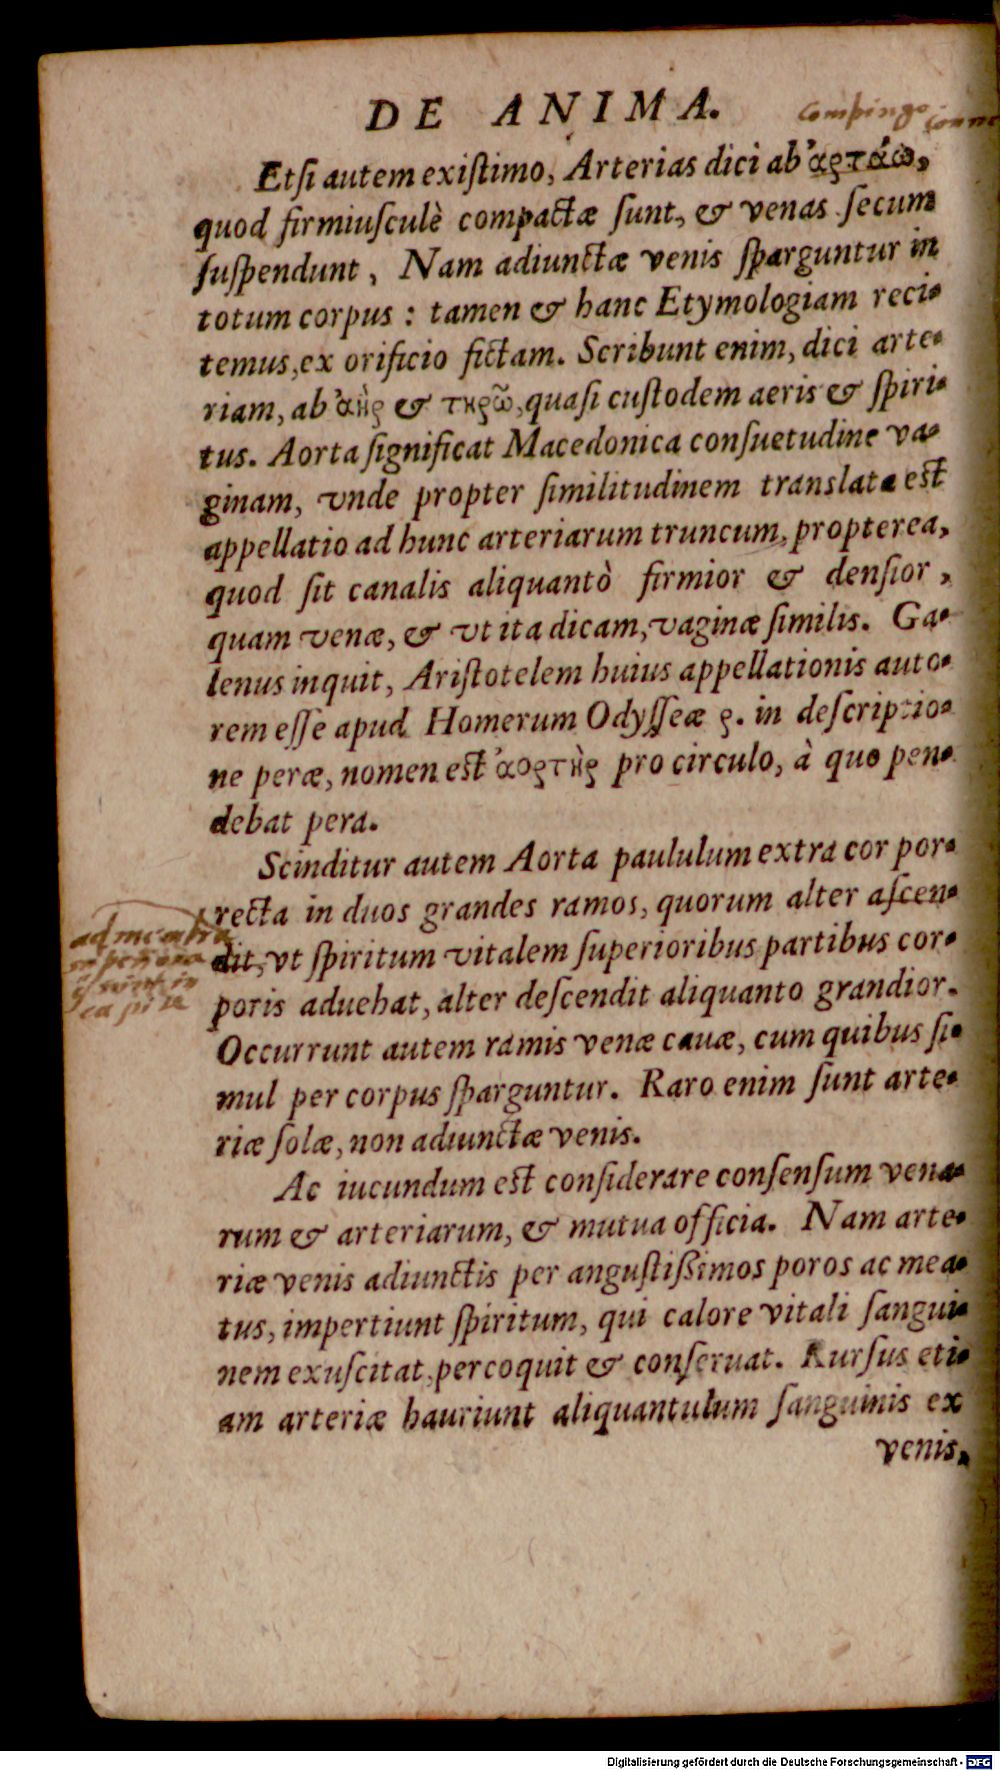 DE ANIMA.
compingo
Etſi autem exiſtimo, Arterias dici ab ἀρτάω,
quod firmiuſculè compactæ ſunt, & venas ſecum
ſuſpendunt, Nam adiunctæ venis ſparguntur in
totum corpus: tamen & hanc Etymologiam reci-
temus, ex orificio fictam. Scribunt enim, dici arte-
riam, ab ἀὴρ & τηρῶ, quaſi cuſtodem aeris & ſpiri-
tus. Aorta ſignificat Macedonica conſuetudine va-
ginam, vnde propter ſimilitudinem translata eſt
appellatio ad hunc arteriarum truncum, propterea,
quod ſit canalis aliquantò firmior & denſior,
quam venæ, & vt ita dicam, vaginæ ſimilis. Ga-
lenus inquit, Ariſtotelem huius appellationis auto-
rem eſſe apud Homerum Odyſſeæ ρ. in deſcriptio-
ne peræ, nomen eſt ἀορτὴρ pro circulo, à quo pen-
debat pera.
Scinditur autem Aorta paululum extra cor por-
recta in duos grandes ramos, quorum alter aſcen-
dit, vt ſpiritum vitalem ſuperioribus partibus cor-
poris aduehat, alter deſcendit aliquanto grandior.
Occurrunt autem ramis venæ cauæ, cum quibus ſi-
mul per corpus ſparguntur. Raro enim ſunt arte-
riæ ſolæ, non adiunctæ venis.
ad membra
ſuperiora
ſunt in
capite
Ac iucundum eſt conſiderare conſenſum vena-
rum & arteriarum, & mutua officia. Nam arte-
riæ venis adiunctis per anguſtißimos poros ac mea-
tus, impertiunt ſpiritum, qui calore vitali ſangui-
nem exuſcitat, percoquit & conſeruat. Rurſus eti-
am arteriæ hauriunt aliquantulum ſanguinis ex
venis,
Digitalisierung gefördert durch die Deutsche Forschungsgemeinschaft - DFG